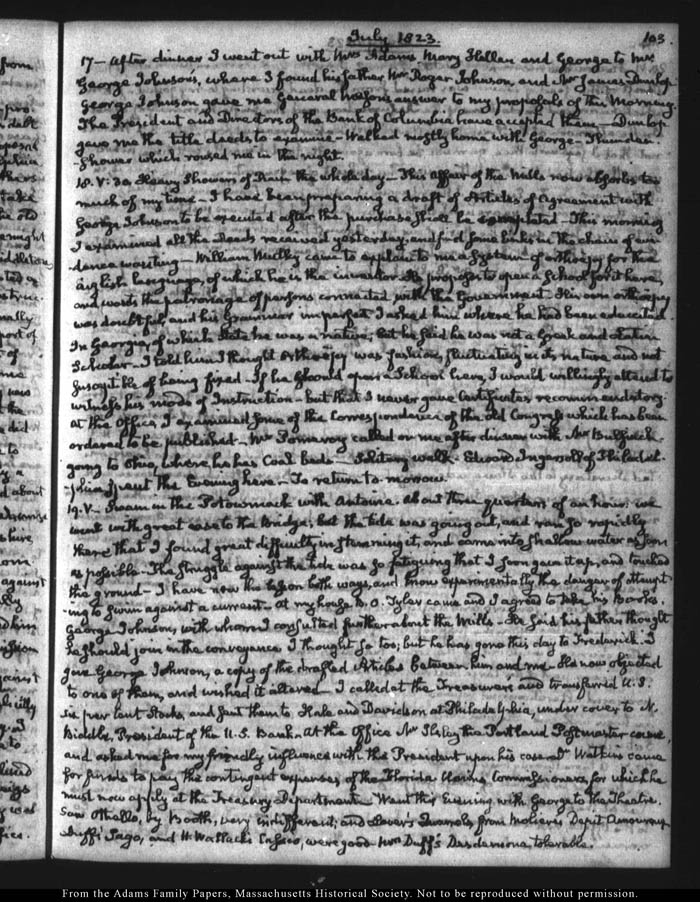 July 1823.
103.
17 — After dinner I went out with Mrs Adams Mary Hellen and George to Mr
George Johnson's, where I found his father Mr Roger Johnson, and Mr James Dunlop
George Johnson gave me General answer to my proposals of this Morning.
The President and Directors of the Bank of Columbia have accepted them — Dunlop
gave me the title deeds to examine — Walked mostly home with George — Thunder
Shower which roused me in the night.
18. V: 30 Heavy Showers of Rain the whole day — This affair of the Mills now absorbs too
much of my time — I have been preparing a draft of Articles of Agreement with
George Johnson to be executed after the purchase shall be completed — This morning
I examined all the Deeds received yesterday; and find some links in the chain of evi-
dence wanting — William came to explain to me a System of orthoepy for the
English language, of which he is the inventor. He proposes to open a School for it here,
and wants the patronage of persons connected with the Government. His own orthoepy
was doubtful, and his Grammar imperfect. I asked him where he had been educated.
In Georgia, of which State he was a native; but he said he was not a Greek and Latin
Scholar — I told him I thought Orthoepy was fashion, fluctuating in its nature and not
susceptible of being fixed — If he should open a School here, I would willingly attend to
witness his mode of Instruction — but that I never gave Certificates recommendatory.
At the Office, I examined some of the Correspondence of the old Congress which has been
ordered to be published — Mr Pomeroy called on me after dinner with Mr Bulfinch.
going to Ohio, where he has Coal beds — Solitary walk — Edward Ingersoll of Philadel-
-phia spent the Evening here — To return to-morrow.
19. V — Swam in the Potowmack with Antoine. About three quarters of an hour; we
went with great ease to the Bridge; but the tide was going out, and ran so rapidly
there that I found great difficulty in stemming it, and came into shallow water as soon
as possible. The struggle against the tide was so fatiguing that I soon gave it up, and touched
the ground — I have now the lesson both ways, and know experimentally the danger of attempt-
-ing to swim against a current — At my house B. O. Tyler came and I agreed to take his Books
George Johnson, with whom I consulted further about the Mills — He said his father thought
he should join in the conveyance. I thought so too; but he has gone this day to Frederick. I
gave George Johnson, a copy of the drafted Articles between him and me — He now objected
to one of them, and wished it altered. I called at the Treasurer's and transferred U.S.
six per Cent Stocks, and sent them to Hale and Davidson at Philadelphia, under cover to N.
Biddle, President of the U.S. Bank. At the Office Mr Ilsley the Portland Postmaster came,
and asked me for my friendly influence with the President upon his case. Dr Watkins came
for funds to pay the contingent expenses of the Florida Claims Commissioners, for which he
must now apply at the Treasury Department — Went this Evening with George to the Theatre.
Saw Othello, by Booth, very indifferent; and Lover's Quarrels from Moliere's Depit Amoureux
Duff's Iago, and H. Wallack's Cassio, were good. Mrs Duff's Desdemona, tolerable.
From the Adams Family Papers, Massachusetts Historical Society. Not to be reproduced without permission.